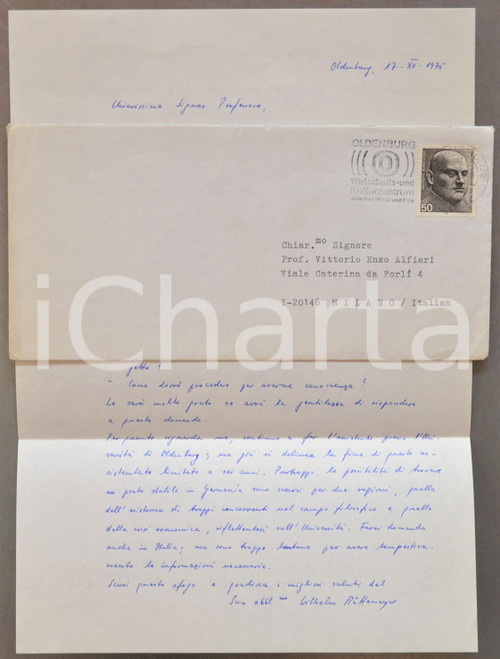 Oldenburg, 17-XV-1975
Chiarissimo Signor Professore,
OLDENBURG
Wirtschafts-und
Kulturzentrum
zwischen Weser und Ems
50
Chiar.mo Signore
Prof. Vittorio Enzo Alfieri
Viale Caterina da Forlì 4
I-20146 MILANO / Italien
iCharta
getto?
- Come dovrò procedere per averne conoscenza?
Le sarò molto grato se avrà la gentilezza di rispondere
a queste domande.
Per quanto riguarda me, continuo a far l'assistente presso l'Uni-
versità di Oldenburg; ma già si delinea la fine di questo as-
sistentato limitato a sei anni. Purtroppo, le possibilità di trovare
un posto stabile in Germania sono scarsi per due ragioni, quella
dell'esistenza di troppi concorrenti nel campo filosofico e quella
della crisi economica, riflettentesi sull'Università. Farei domanda
anche in Italia; ma sono troppo lontano per avere tempestiva-
mente le informazioni necessarie.
Scusi questo sfogo e gradisca i migliori saluti del
Suo obbl.mo Wilhelm Büttemeyer